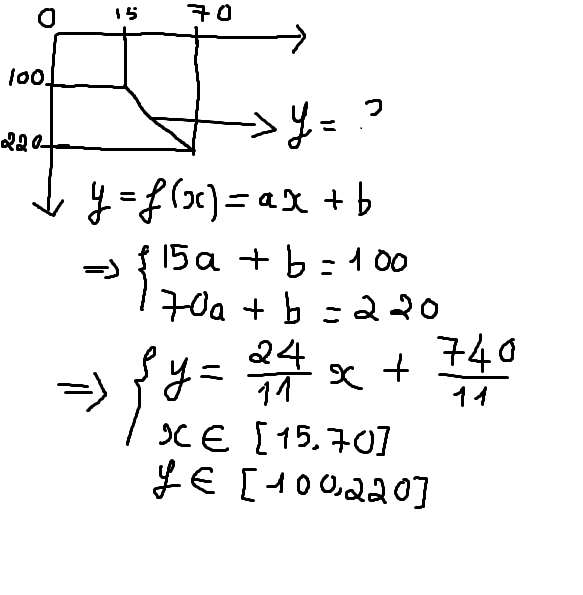 0 15 70
100
y = ?
220
y = f(x) = ax + b
⇒ { 15a + b = 100
70a + b = 220
⇒ { y = 24/11 x + 740/11
x ∈ [15.70]
y ∈ [100,220]